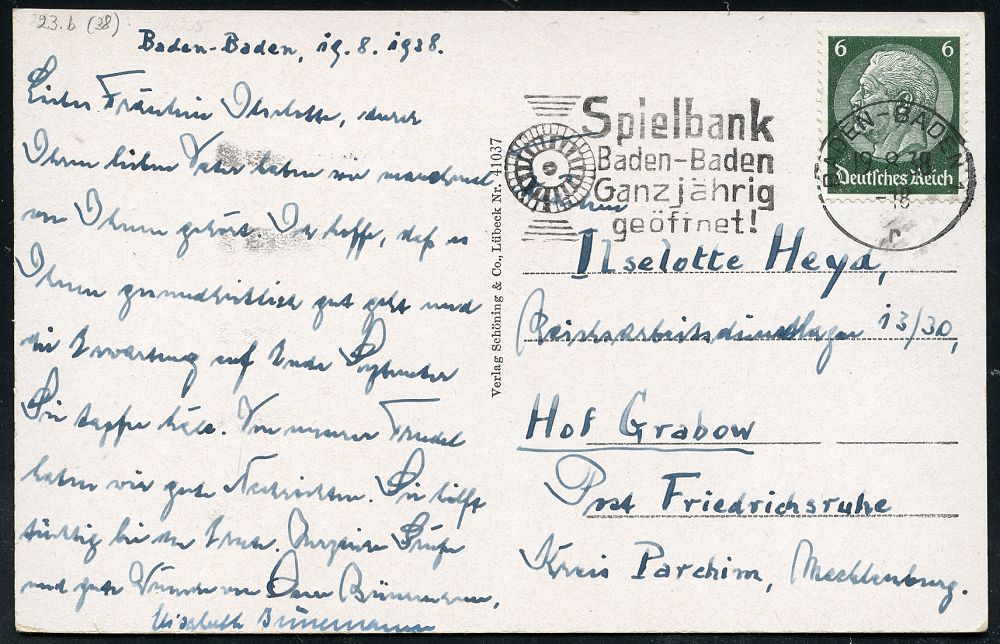 23.b (38)
Baden-Baden, 19.8.1938.
Liebes Fräulein Ilselotte, durch
Ihren lieben Vater haben wir manchmal
von Ihnen gehört. Ich hoffe, daß es
Ihnen gesundheitlich gut geht und
die Erwartung auf Ende September
Sie tapfer hält. Von unserer Friedel
haben wir gute Nachrichten. Sie hilft
tüchtig bei der Ernte. Herzliche Grüße
und gute Wünsche von Ihrer
Elisabeth Bünemann
Verlag Schöning & Co., Lübeck Nr. 41037
Spielbank
Baden-Baden
Ganzjährig
geöffnet!
6 6
Deutsches Reich
BADEN-BADEN
19.8.38
-18
c
Ilselotte Heyd,
Reichsarbeitsdienstlager 13/30,
Hof Grabow
Post Friedrichsruhe
Kreis Parchim, Mecklenburg.